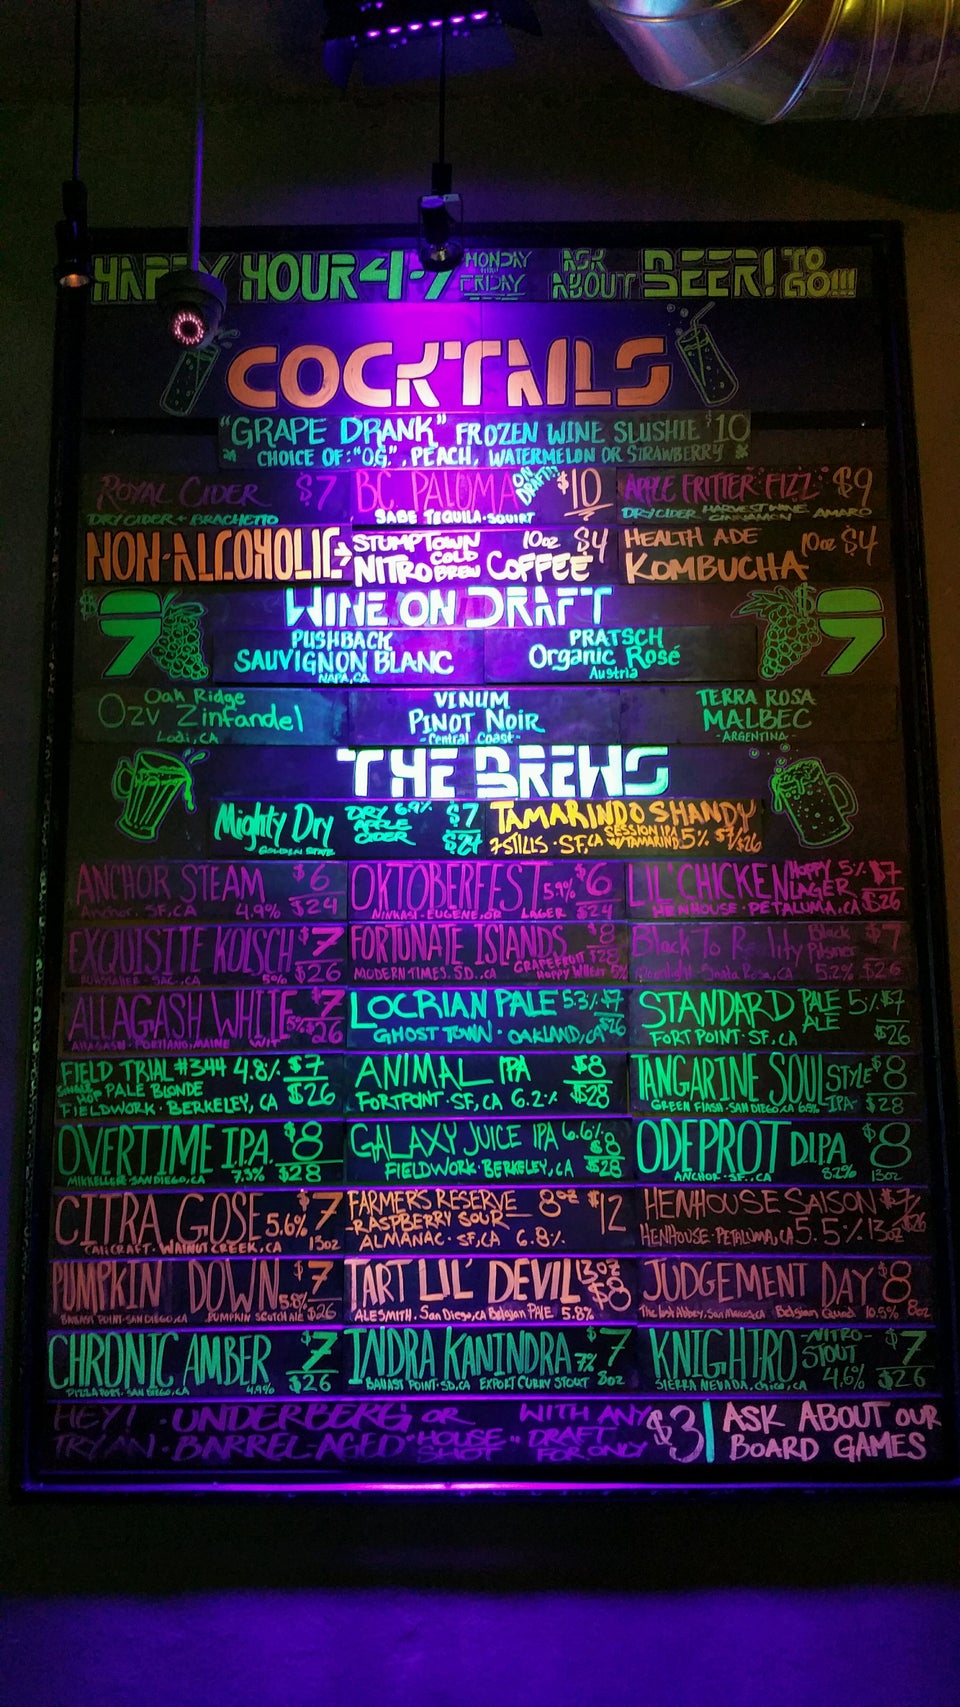 HAPPY HOUR 4-7 MONDAY THRU FRIDAY ASK ABOUT BEER! TO GO!!!
COCKTAILS
"GRAPE DRANK" FROZEN WINE SLUSHIE $10
CHOICE OF: "O.G.", PEACH, WATERMELON OR STRAWBERRY
ROYAL CIDER $7
DRY CIDER + BRACHETTO
BC PALOMA ON DRAFT! $10
SABE TEQUILA · SQUIRT
APPLE FRITTER FIZZ $9
DRY CIDER HARVEST WINE CINNAMON AMARO
NON-ALCOHOLIC→
STUMPTOWN 10oz $4
NITRO COLD BREW COFFEE
HEALTH ADE
KOMBUCHA 10oz $4
$9 WINE ON DRAFT $9
PUSHBACK
SAUVIGNON BLANC
NAPA, CA
PRATSCH
Organic Rosé
Austria
Oak Ridge
OZV Zinfandel
Lodi, CA
VINUM
PINOT NOIR
-Central Coast-
TERRA ROSA
MALBEC
-ARGENTINA-
THE BREWS
Mighty Dry DRY APPLE CIDER 6.9% $7 $24
GOLDEN STATE
TAMARINDO SHANDY
7 STILLS · SF, CA SESSION IPA W/ TAMARIND 5% $7/$26
ANCHOR STEAM $6
Anchor. SF, CA 4.9% $24
OKTOBERFEST 5.9% $6
NINKASI · EUGENE, OR LAGER $24
LIL' CHICKEN HOPPY LAGER 5% $7
HENHOUSE · PETALUMA, CA $26
EXQUISITE KOLSCH $7
SAC., CA 5% $26
FORTUNATE ISLANDS $8
MODERN TIMES. S.D., CA GRAPEFRUIT HOPPY WHEAT 5% $28
Black To Reality Black Pilsner $7
Moonlight · Santa Rosa, CA 5.2% $26
ALLAGASH WHITE $7
ALLAGASH · PORTLAND, MAINE WIT 5% $26
LOCRIAN PALE 5.3% $7
GHOST TOWN · OAKLAND, CA $26
STANDARD PALE ALE 5% $7
FORT POINT · SF, CA $26
FIELD TRIAL #344 4.8% $7
SINGLE HOP PALE BLONDE $26
FIELDWORK · BERKELEY, CA
ANIMAL IPA $8
FORT POINT · SF, CA 6.2% $28
TANGARINE SOUL STYLE IPA $8
GREEN FLASH · SAN DIEGO, CA 6.8% $28
OVERTIME IPA. $8
MIKKELLER · SAN DIEGO, CA 7.3% $28
GALAXY JUICE IPA 6.6% $8
FIELDWORK · BERKELEY, CA $28
ODEPROT D.IPA $8
ANCHOR · SF., CA 8.2% 13oz
CITRA GOSE 5.6% $7
CALICRAFT · WALNUT CREEK, CA 13oz
FARMER'S RESERVE 8oz $12
RASPBERRY SOUR
ALMANAC · SF, CA 6.8%
HENHOUSE SAISON $7
HENHOUSE · PETALUMA, CA 5.5% 13oz $26
PUMPKIN DOWN 5.8% $7
BALLAST POINT · SAN DIEGO, CA PUMPKIN SCOTCH ALE $26
TART LIL' DEVIL 13oz $8
ALESMITH. San Diego, CA Belgian PALE 5.8%
JUDGEMENT DAY $8
The Lost Abbey, San Marcos, CA Belgian Quad 10.5% 8oz
CHRONIC AMBER $7
PIZZA PORT. SAN DIEGO, CA 4.9% $26
INDRA KANINDRA 7% $7
BALLAST POINT · SD, CA EXPORT CURRY STOUT 8oz
KNIGHTRO -NITRO- STOUT $7
SIERRA NEVADA, Chico, CA 4.6% $26
HEY! · UNDERBERG OR WITH ANY $3
TRY AN · BARREL-AGED "HOUSE SHOT" DRAFT FOR ONLY
ASK ABOUT OUR
BOARD GAMES